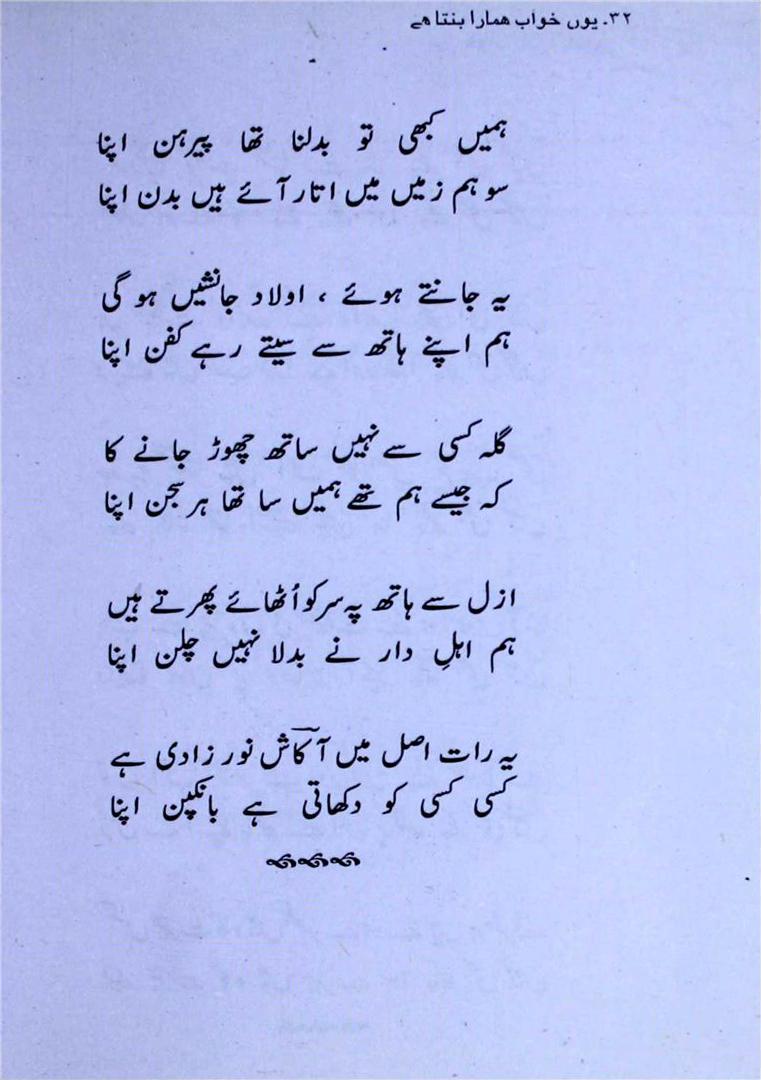 ۳۲۔ یوں خواب ھمارا بنتا ھے
ہمیں کبھی تو بدلنا تھا پیرہن اپنا
سو ہم زمیں میں اتار آئے ہیں بدن اپنا
یہ جانتے ہوئے ، اولاد جانشیں ہو گی
ہم اپنے ہاتھ سے سیتے رہے کفن اپنا
گلہ کسی سے نہیں ساتھ چھوڑ جانے کا
کہ جیسے ہم تھے ہمیں سا تھا ہر سجن اپنا
ازل سے ہاتھ پہ سر کو اُٹھائے پھرتے ہیں
ہم اہلِ دار نے بدلا نہیں چلن اپنا
یہ رات اصل میں آکاش نور زادی ہے
کسی کسی کو دکھاتی ہے بانکپن اپنا